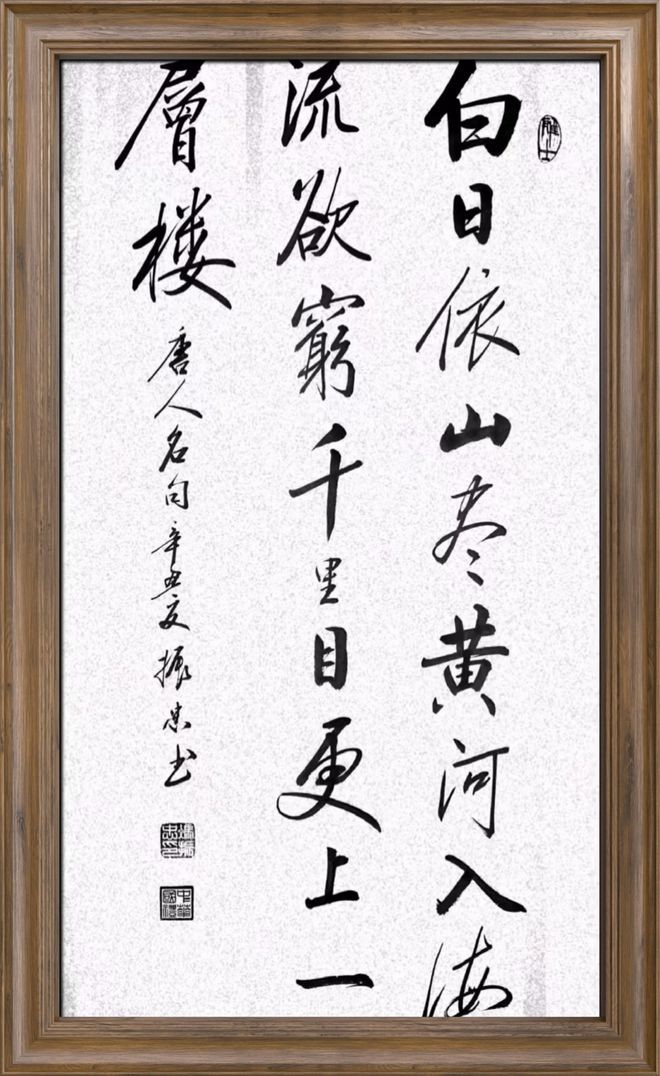 白日依山尽黄河入海
流欲窮千里目更上一
層楼
唐人名句辛丑夏振忠书